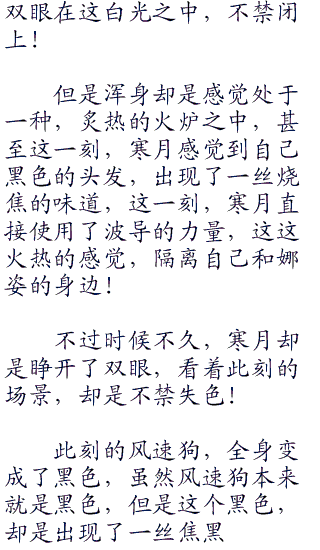 双眼在这白光之中，不禁闭
上！
但是浑身却是感觉处于
一种，炙热的火炉之中，甚
至这一刻，寒月感觉到自己
黑色的头发，出现了一丝烧
焦的味道，这一刻，寒月直
接使用了波导的力量，这这
火热的感觉，隔离自己和娜
姿的身边！
不过时候不久，寒月却
是睁开了双眼，看着此刻的
场景，却是不禁失色！
此刻的风速狗，全身变
成了黑色，虽然风速狗本来
就是黑色，但是这个黑色，
却是出现了一丝焦黑